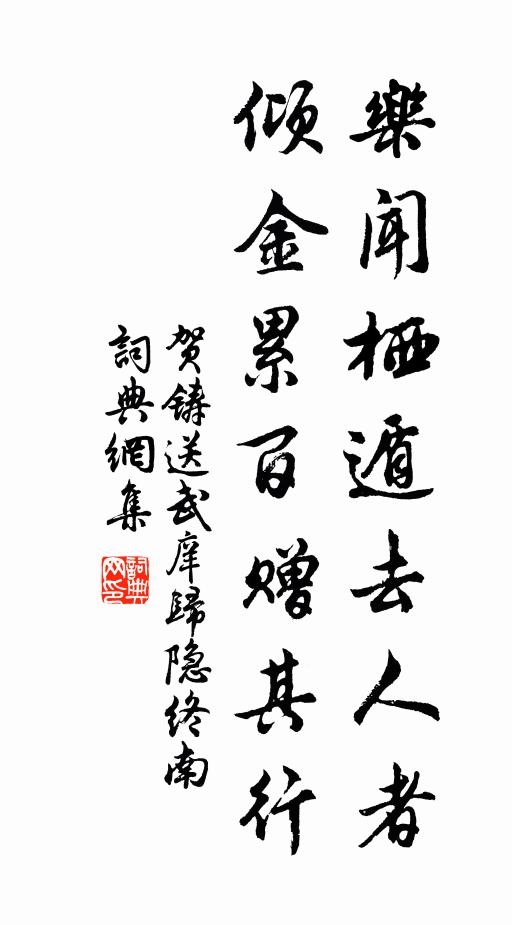 樂聞栖遁去人者
傾金累百贈其行
贺鑄送武庠歸隐终南
詞典網集
詞典網印